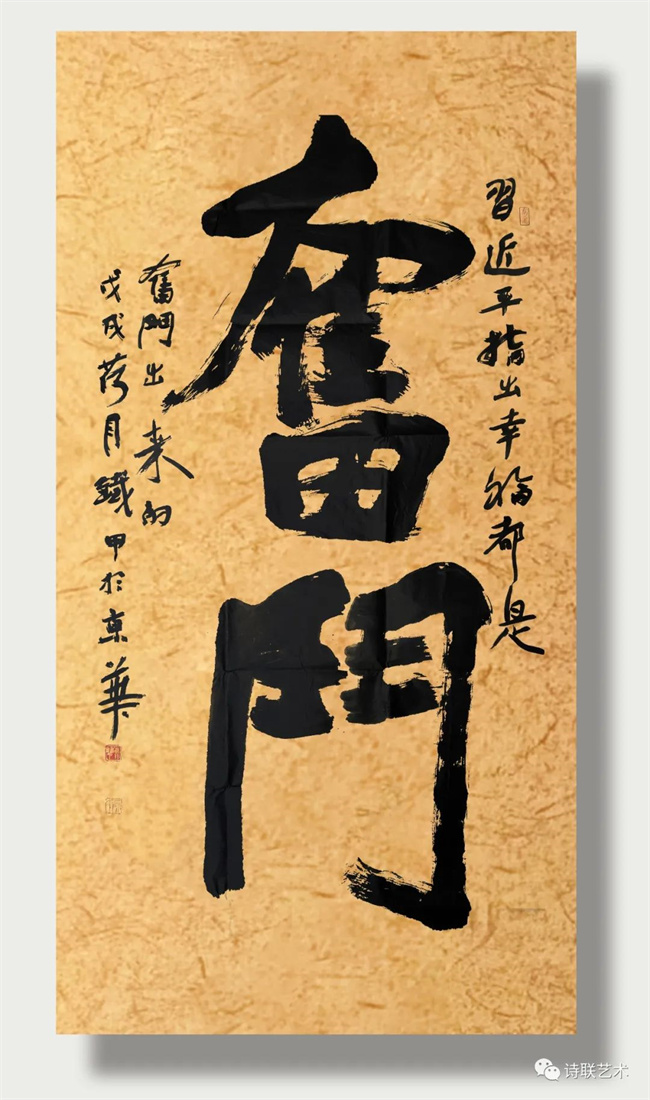 奮鬥
習近平指出幸福都是
奮鬥出来的
戊戌荷月鐵甲於京華
诗联艺术